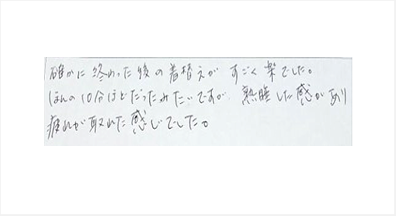 確かに終わった後の着替えがすごく楽でした。
ほんの10分ほどだったみたいですが、熟睡した感があり
疲れが取れた感じでした。